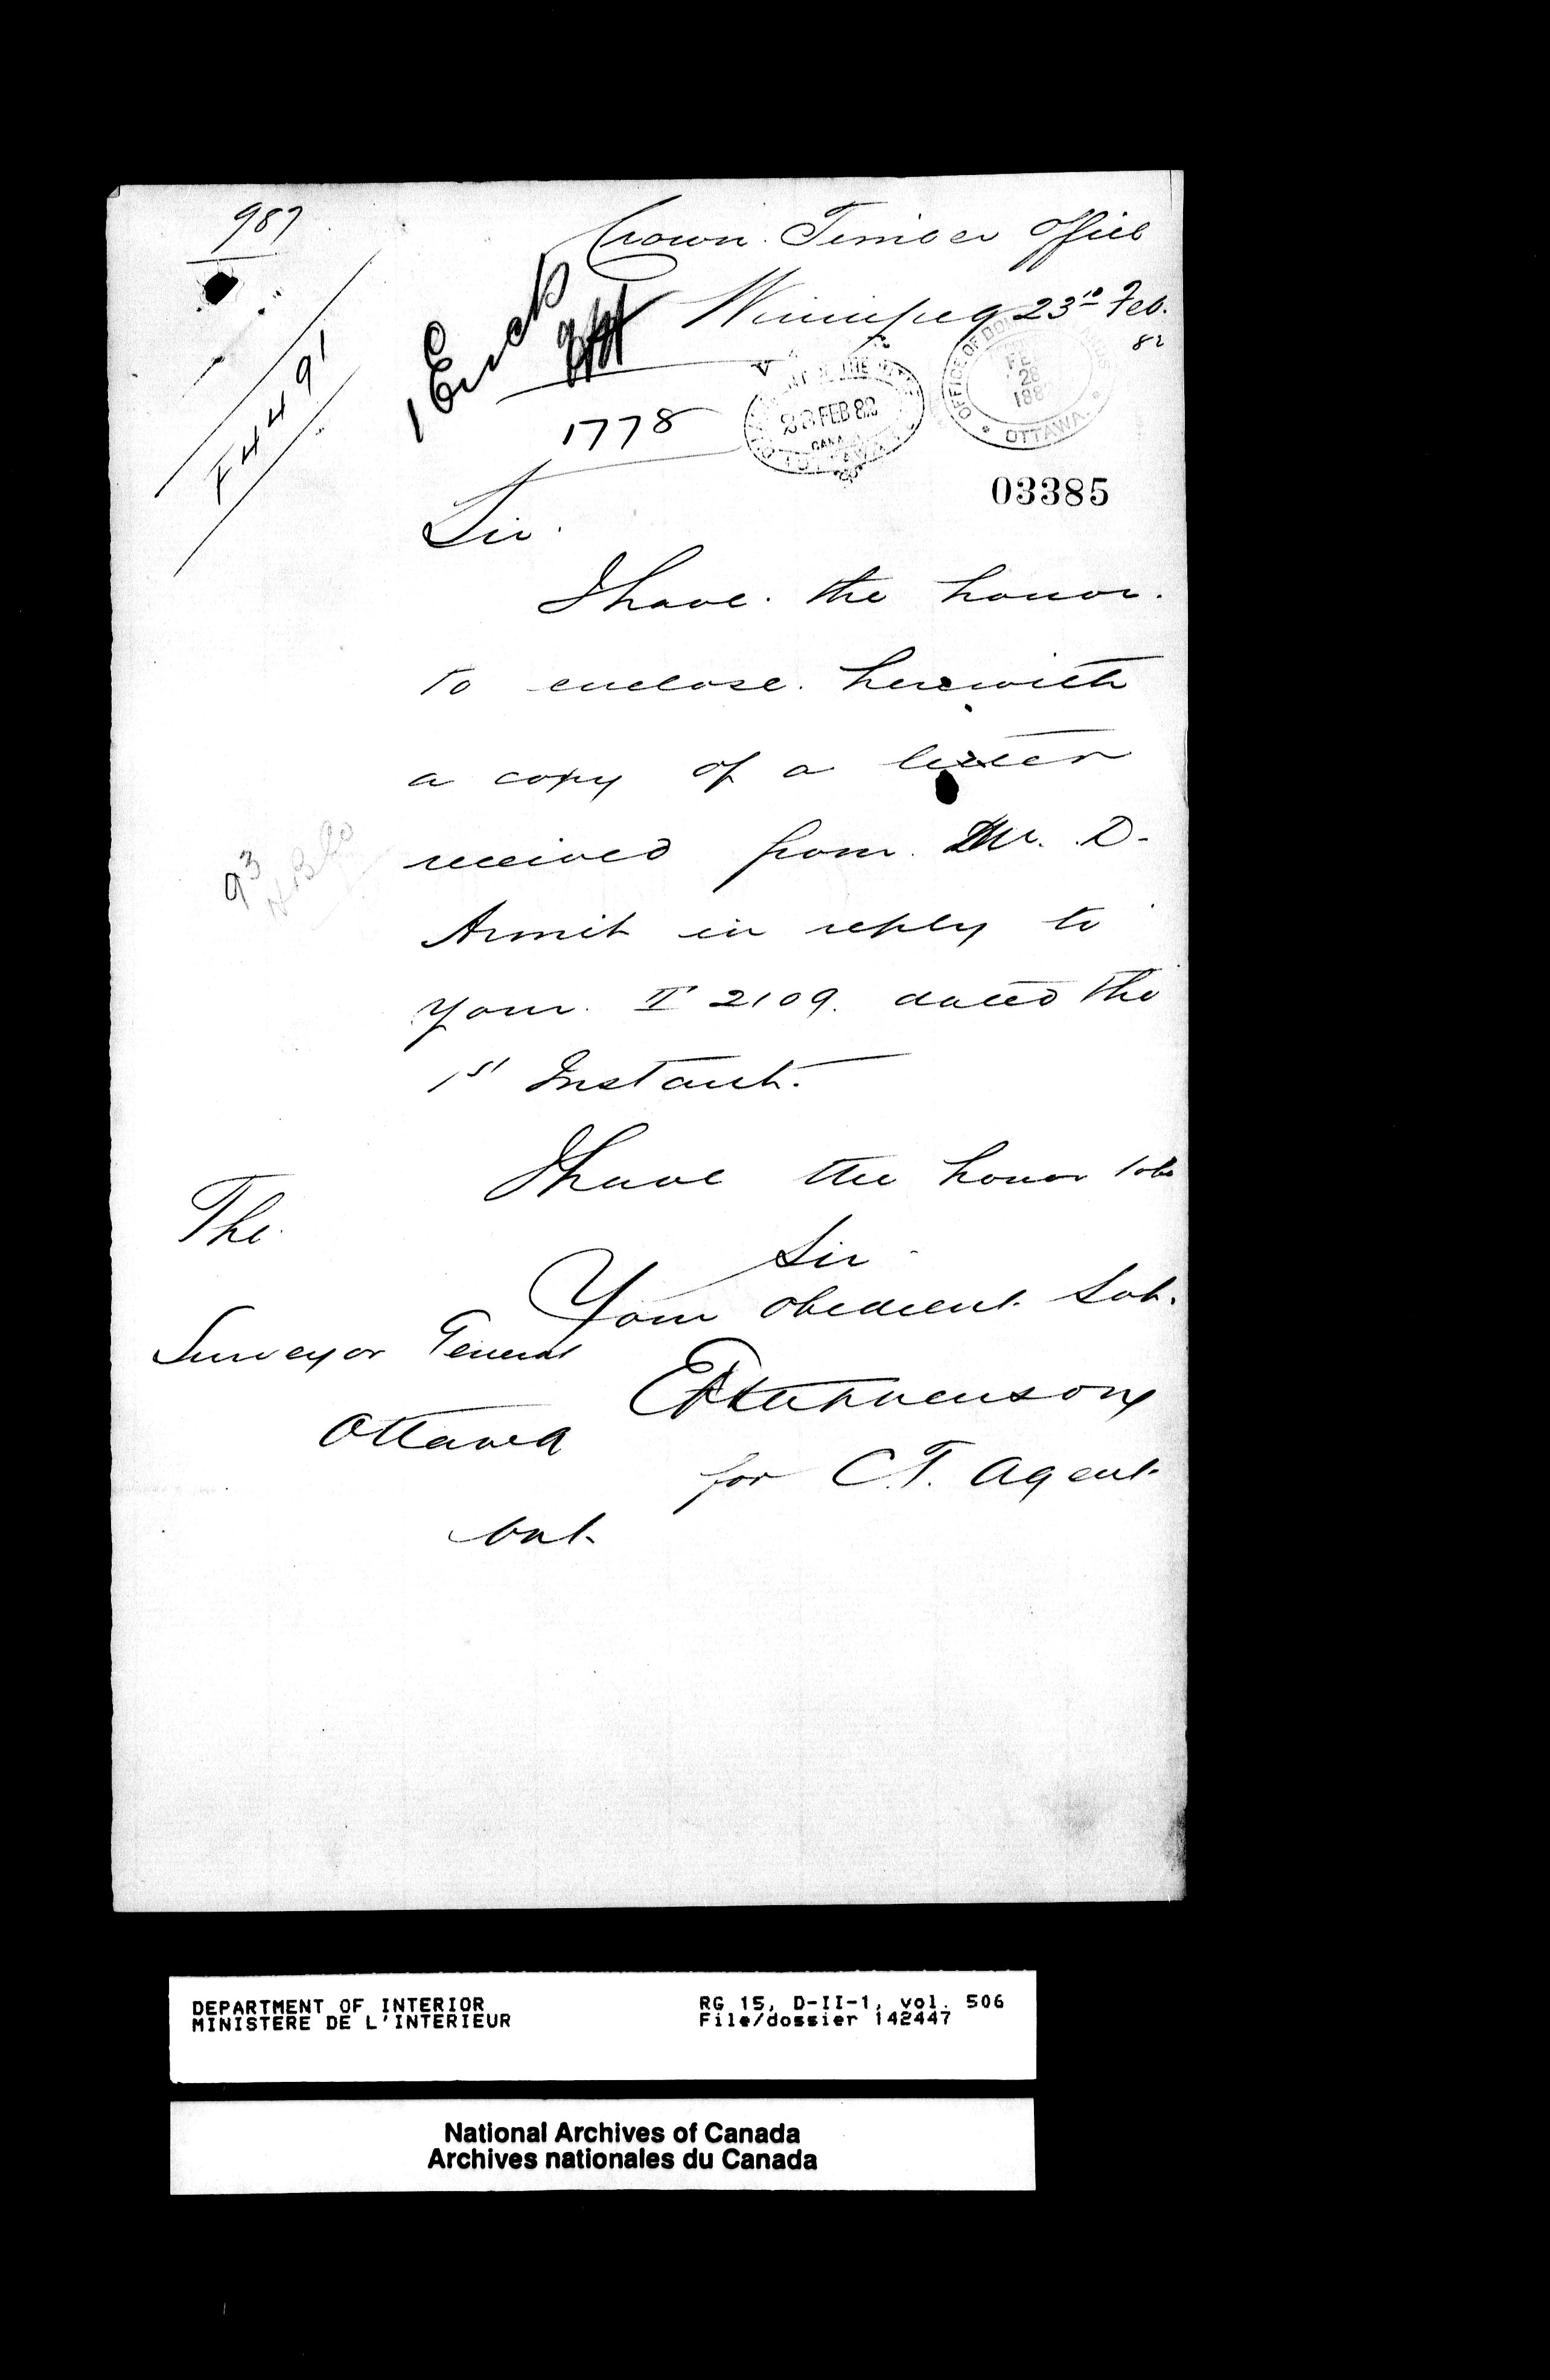 987
Crown Timber Office
Winnipeg 23rd Feb.
82
1 Encl
F4491
1778
28 FEB 82
CANADA
OTTAWA
OFFICE OF DOMINION LANDS
FEB
28
1882
OTTAWA.
03385
Sir.
I have the honor.
to enclose herewith
a copy of a letter
received from Mr. D.
Armit in reply to
your T 2109. dated the
1st Instant.
I have the honor to be
Sir
Your obedient Svt.
E F Stephenson
for C.T. Agent
The
Surveyor General
Ottawa
Ont.
93
HBCo
DEPARTMENT OF INTERIOR
MINISTERE DE L'INTERIEUR
RG 15, D-II-1, vol. 506
File/dossier 142447
National Archives of Canada
Archives nationales du Canada